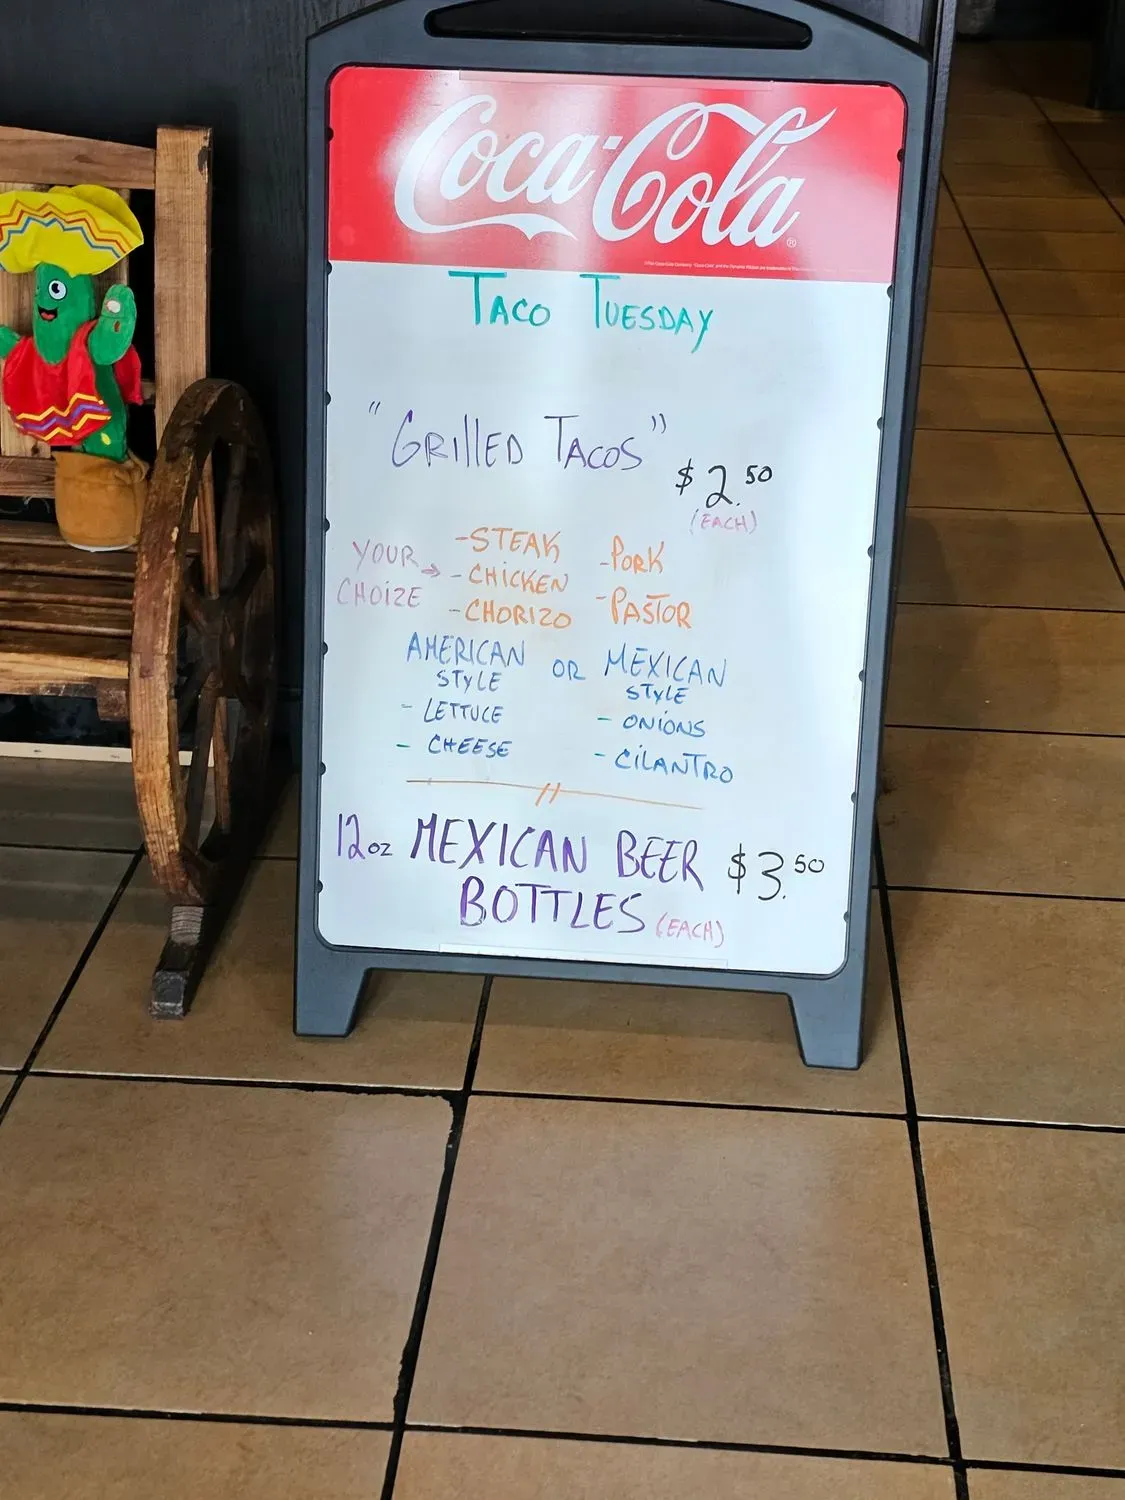 Coca-Cola
TACO TUESDAY
"GRILLED TACOS"
$2.50
(EACH)
YOUR → CHOIZE
-STEAK
-CHICKEN
-CHORIZO
-PORK
-PASTOR
AMERICAN STYLE
- LETTUCE
- CHEESE
OR
MEXICAN STYLE
- ONIONS
- CILANTRO
12oz MEXICAN BEER $3.50
BOTTLES (EACH)